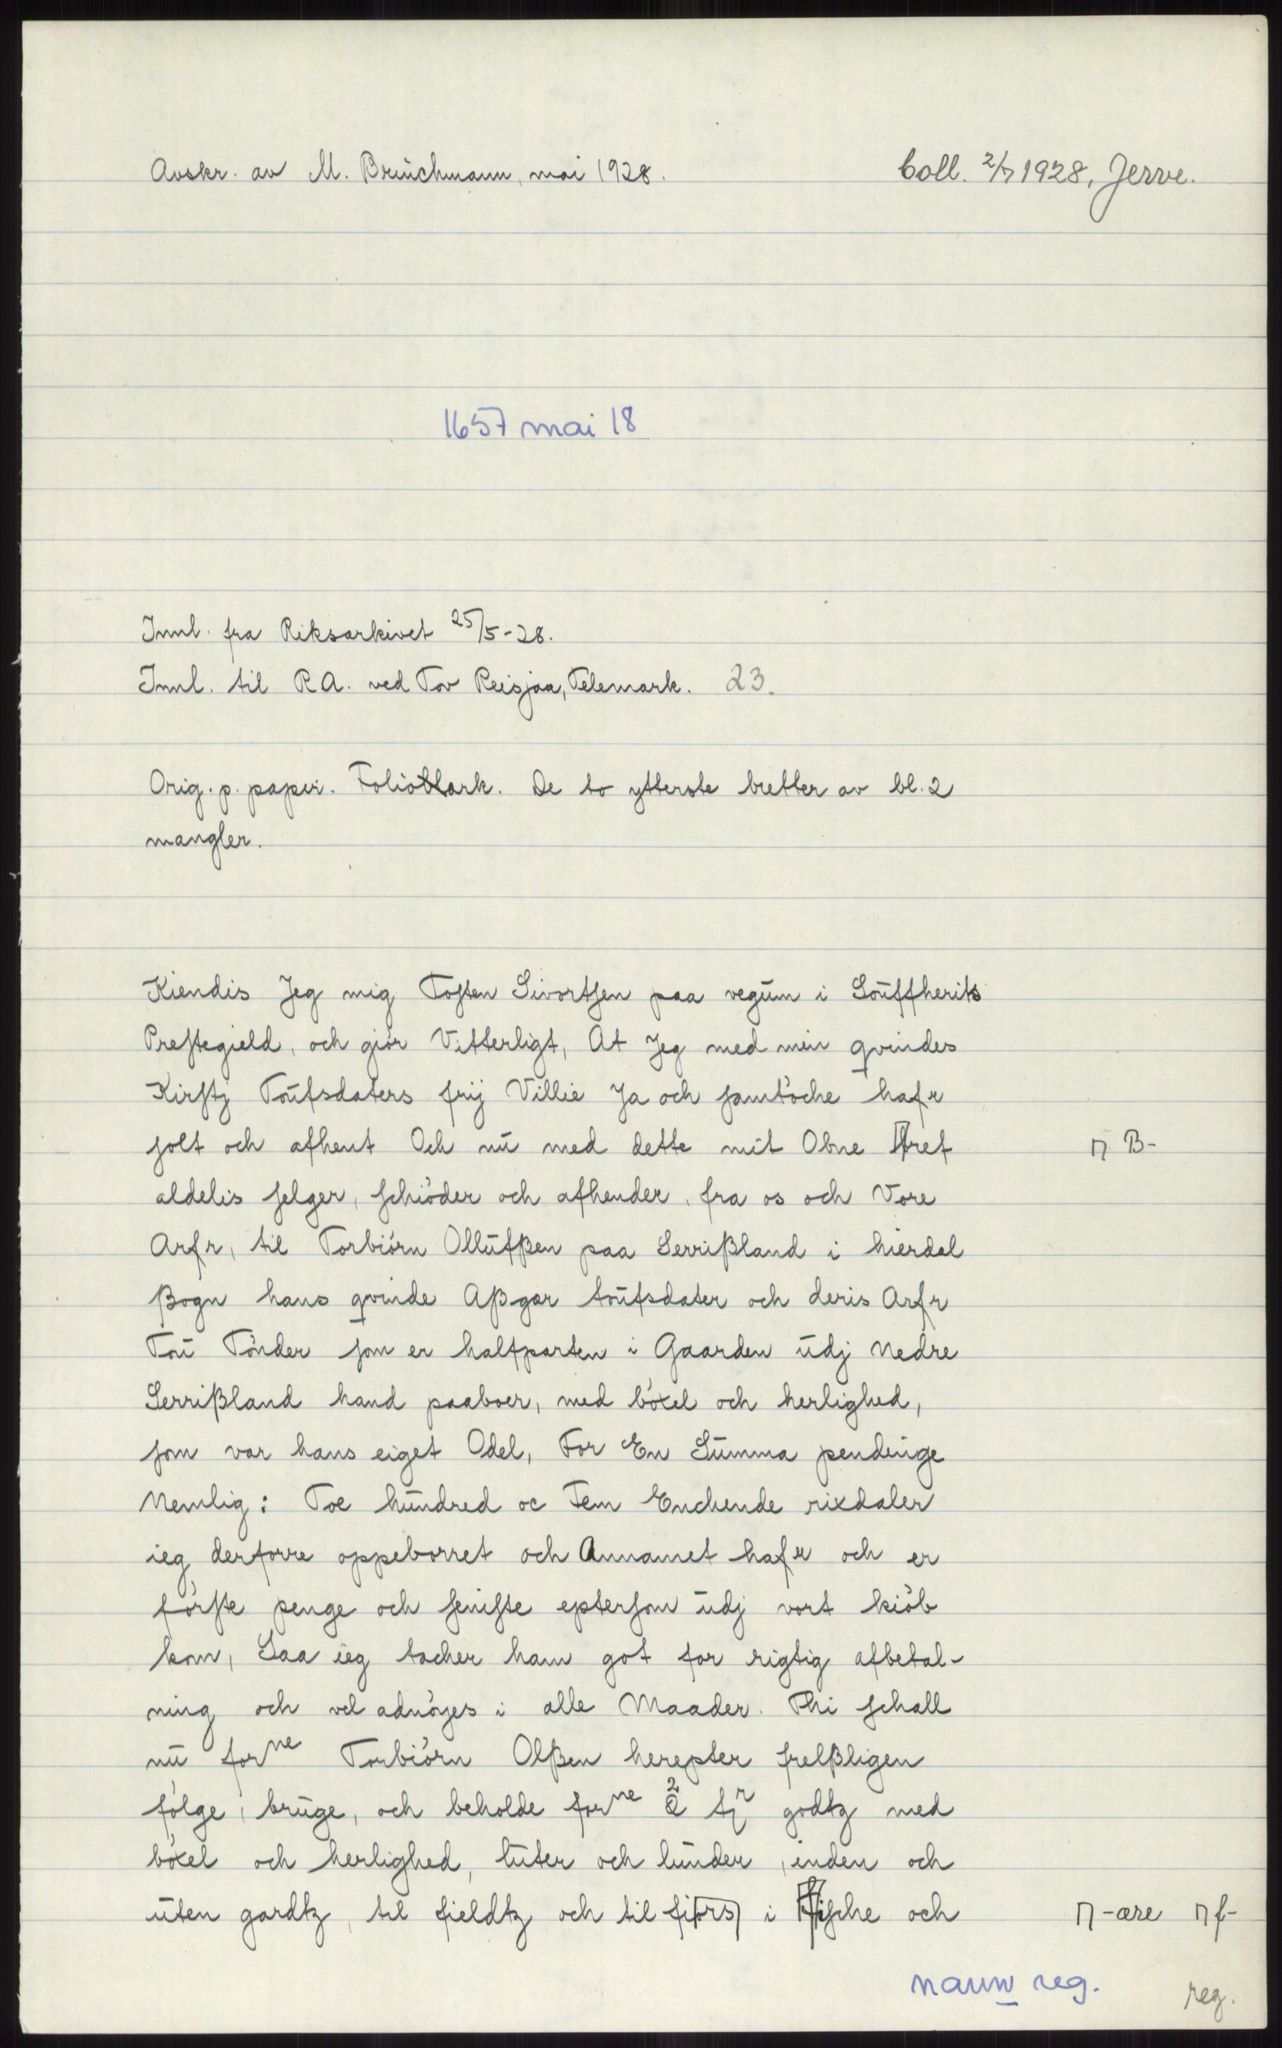 Avskr. av M. Brüchmann, mai 1928.
Coll. 2/7 1928, Jerve.
1657 mai 18
Innl. fra Riksarkivet 25/5-28.
Innl. til R.A. ved Tov Reisjaa, Telemark. 23.
Orig. p. papir. Folioark. De to ytterste bretter av bl. 2
mangler.
Kiendis Jeg mig Toſten Sivortſen paa vegum i Souffherits
Preſtegield, och giör Vitterligt, At Jeg med min qvindes
Kirſtj Toufsdaters frij Villie Ja och ſamtöche hafr
ſolt och afhent Och nu med dette mit Obne href
aldelis ſelger, ſchiöder och afhender, fra os och Vore
Arfr, til Torbiörn Ollufßen paa Serrißland i hierdal
ßogn hans qvinde Aßgar toufsdater och deris Arfr
Tou Tönder ſom er halfparten i Gaarden udj Nedre
Serrißland hand paaboer, med böxel och herlighed,
ſom var hans eiget Odel, For En Summa pendinge
Nemlig: Toe hundred oc Fem Enchende rixdaler
ieg derforre oppeborret och Annamet hafr och er
förſte penge och ſeniſte epterſom udj vort kiöb
kom, Saa ieg tacher ham got for rigtig afbetal-
ning och vel adnöyes i alle Maader. Thi ſchall
nu forne Torbiörn Olßen herepter frelßligen
fölge, bruge, och beholde forne 2 tr godtz med
böxel och herlighed, luter och lunder, inden och
uten gardtz, til fieldtz och til fiors i fiſche och
⊓ B-
⊓-are ⊓ f-
navn reg.
reg.